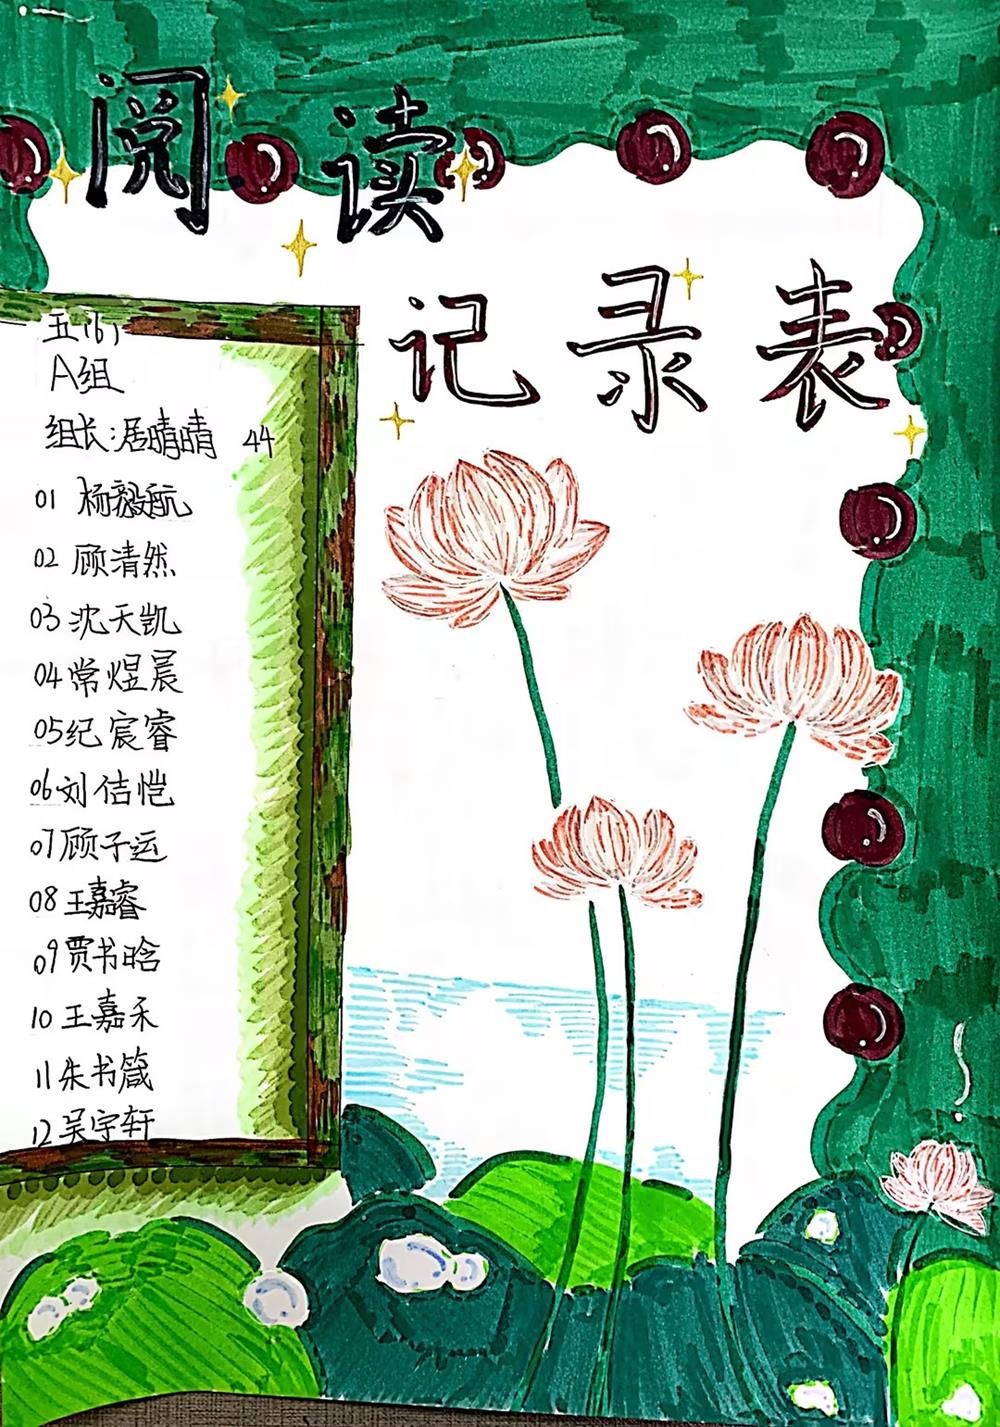 阅读
记录表
五(6)
A组
组长:居晴晴 44
01 杨毅航
02 顾清然
03 沈天凯
04 常煜晨
05 纪宸睿
06 刘佶恺
07 顾子运
08 王嘉睿
09 贾书晗
10 王嘉禾
11 朱书箴
12 吴宇轩